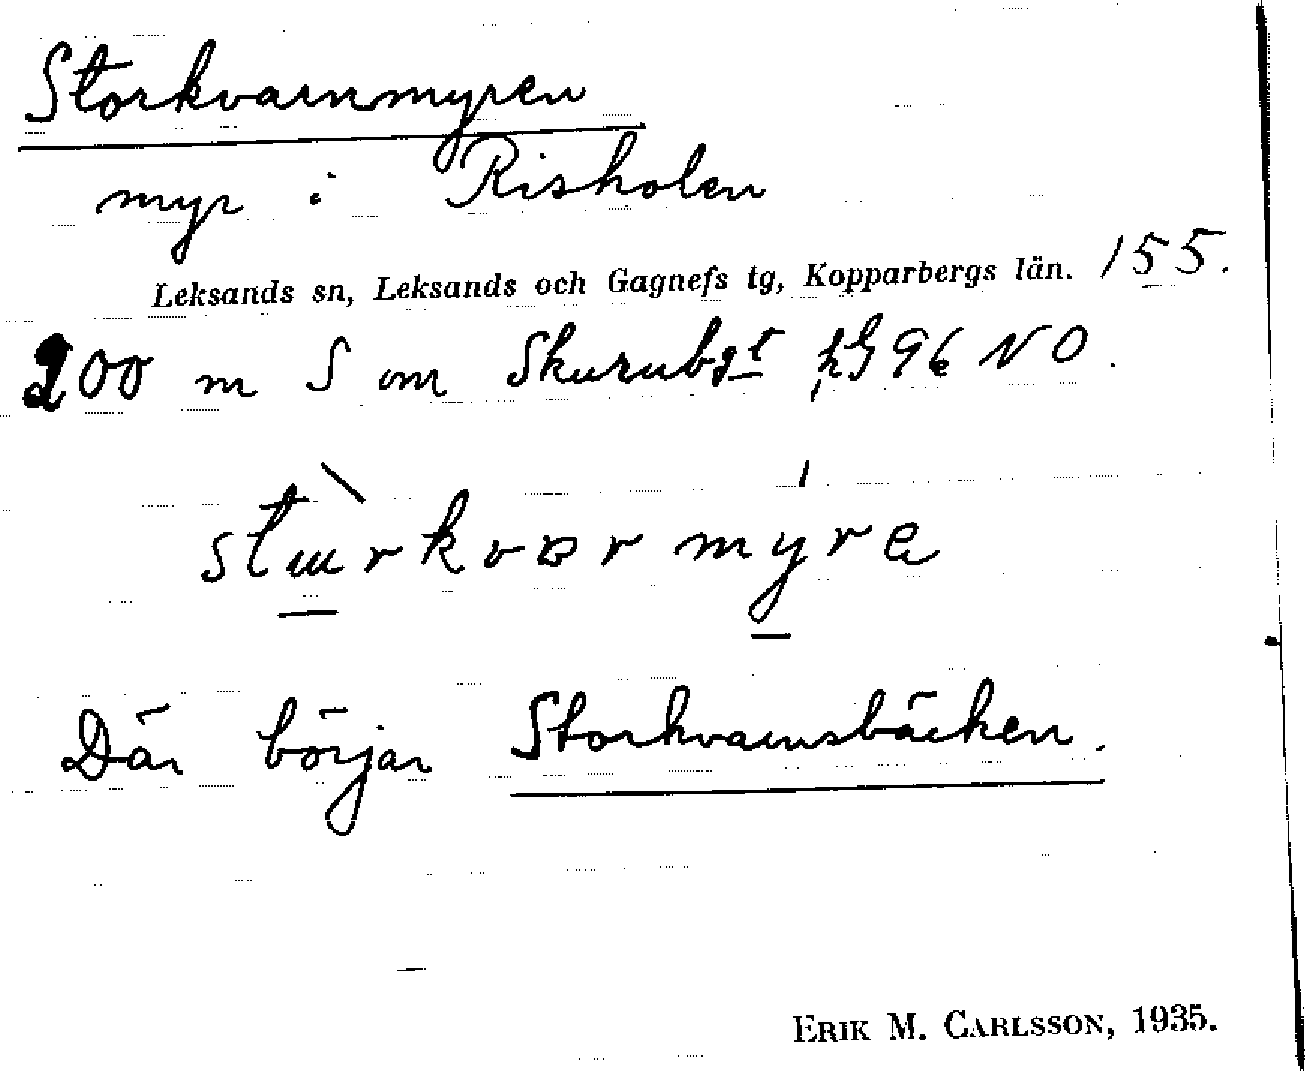 Storkvarnmyren
myr i Risholen
Leksands sn, Leksands och Gagnefs tg, Kopparbergs län. 155.
200 m S om Skurubgt 96 NO.
Där börjar Storkvarnsbäcken.
ERIK M. CARLSSON, 1935.